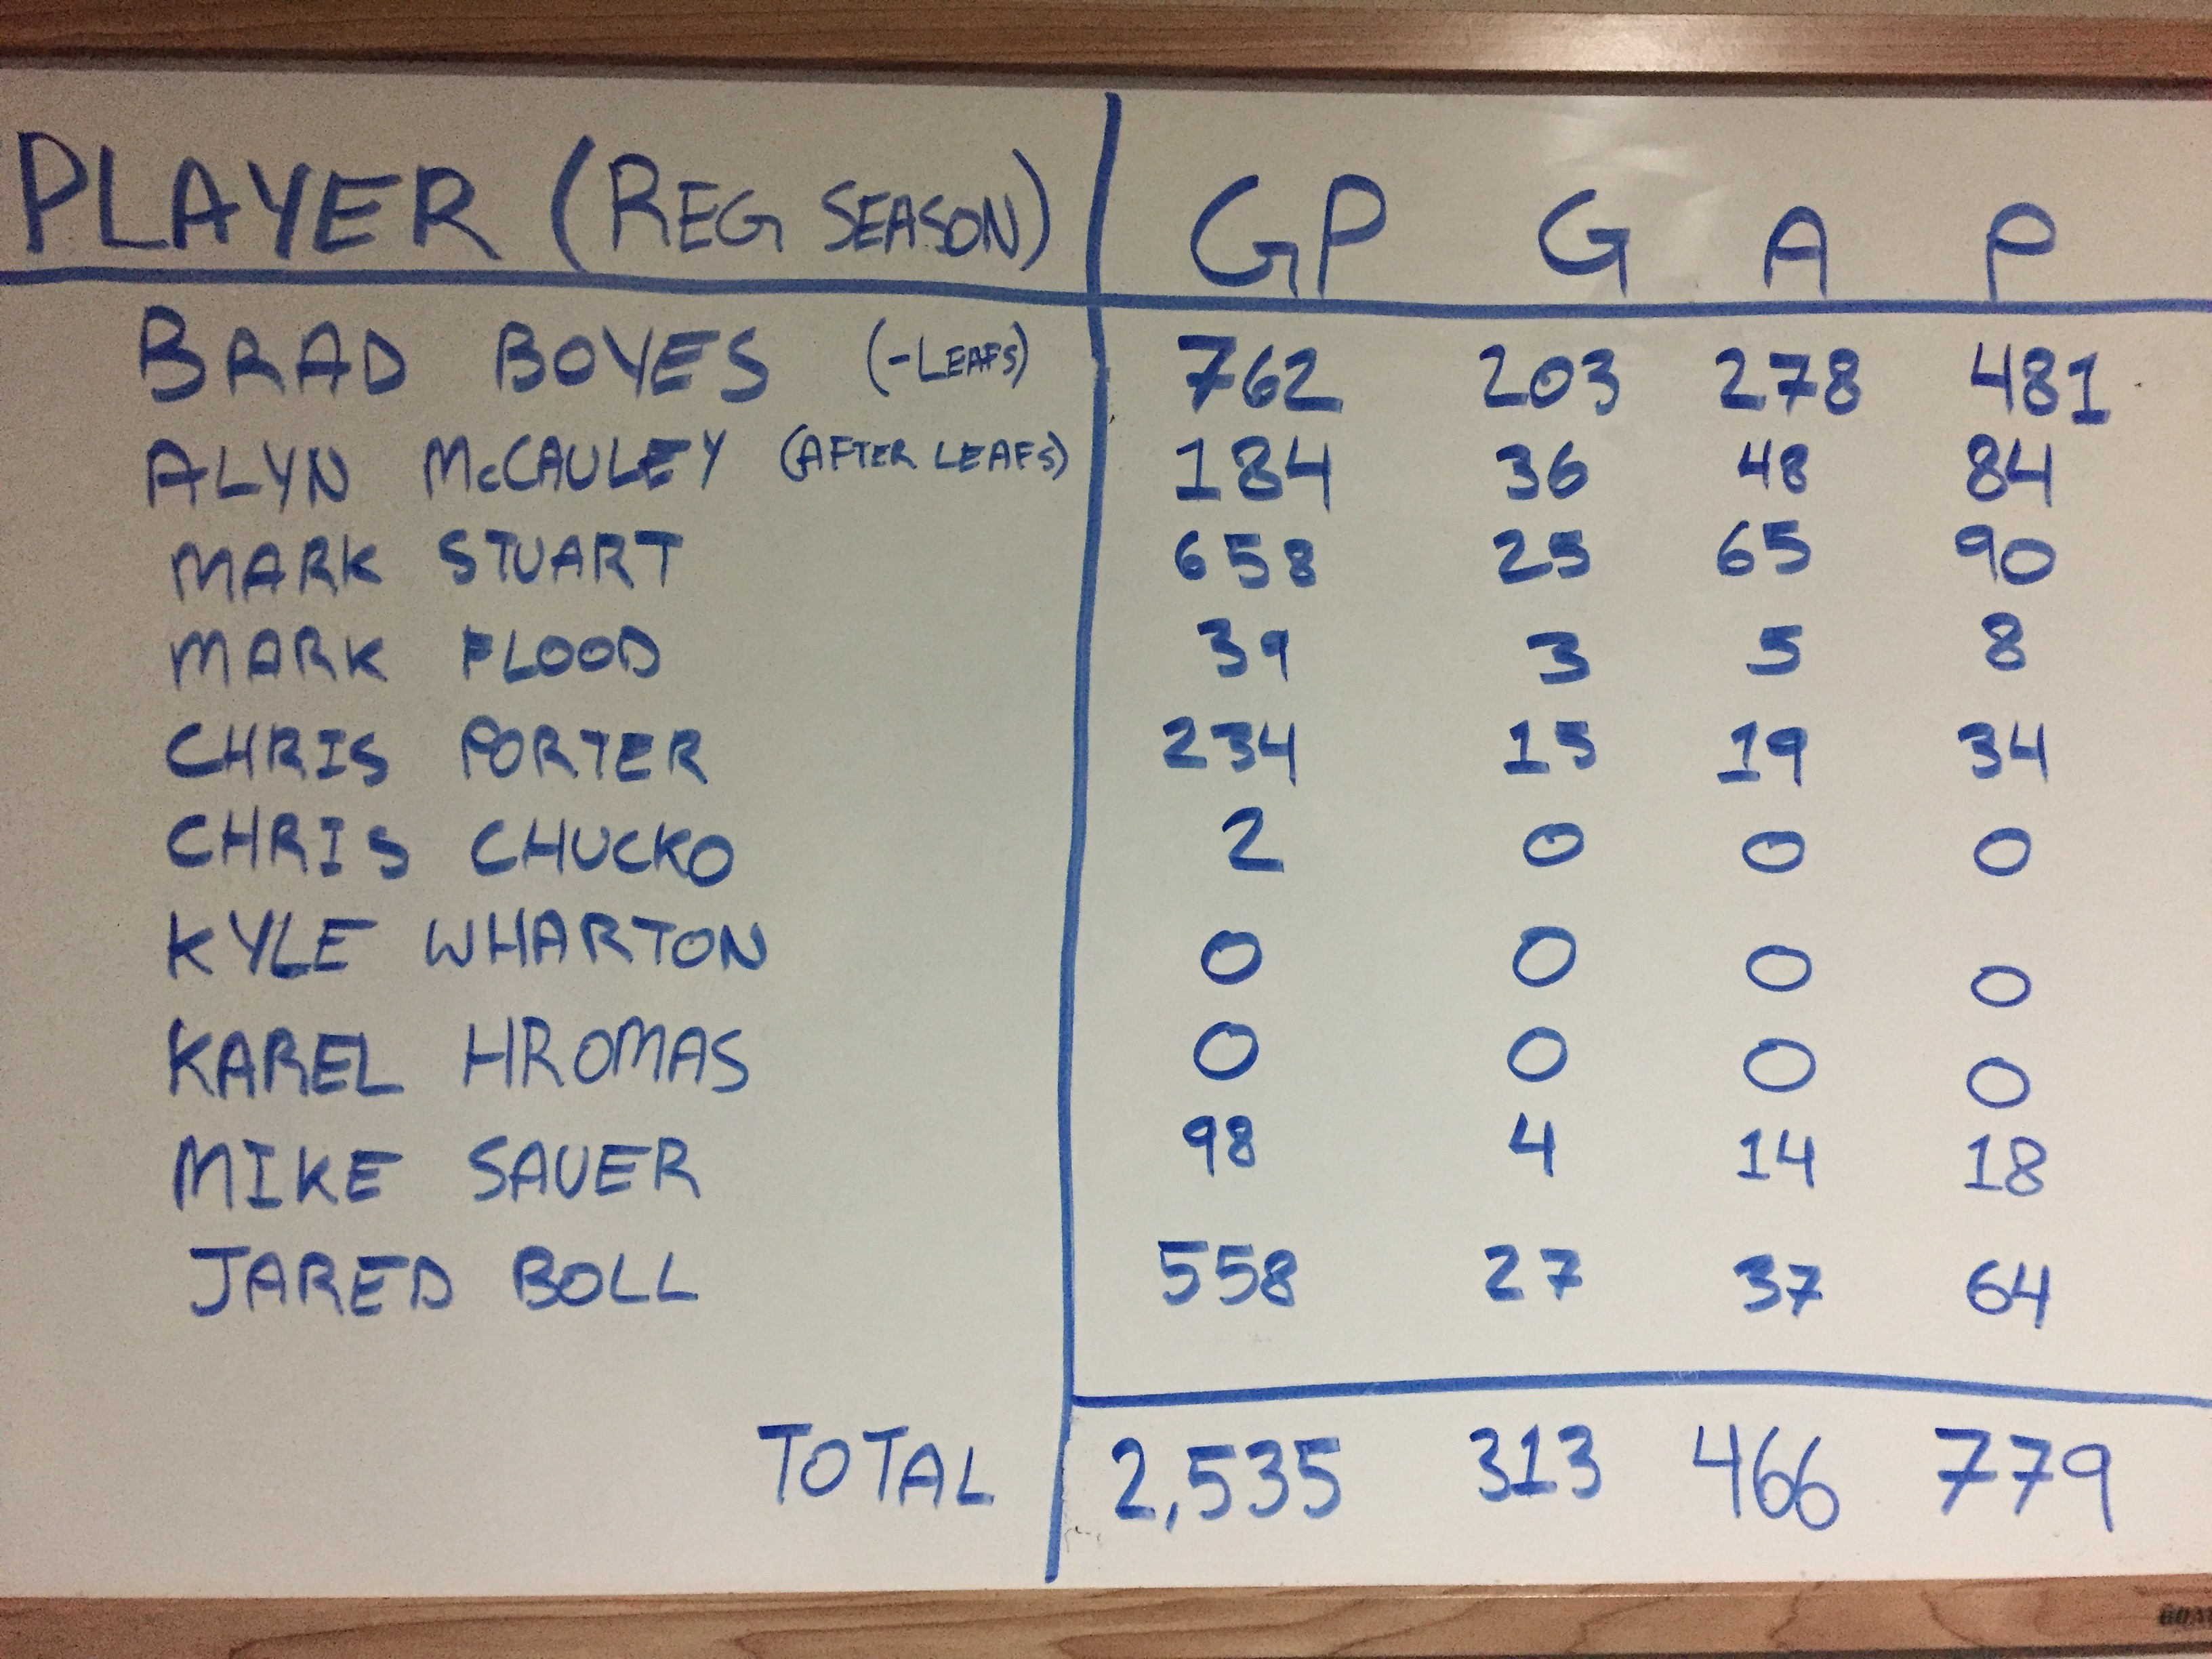 PLAYER (REG SEASON) GP G A P
BRAD BOYES (-LEAFS) 762 203 278 481
ALYN McCAULEY (AFTER LEAFS) 184 36 48 84
MARK STUART 658 25 65 90
MARK FLOOD 39 3 5 8
CHRIS PORTER 234 15 19 34
CHRIS CHUCKO 2 0 0 0
KYLE WHARTON 0 0 0 0
KAREL HROMAS 0 0 0 0
MIKE SAUER 98 4 14 18
JARED BOLL 558 27 37 64
TOTAL 2,535 313 466 779